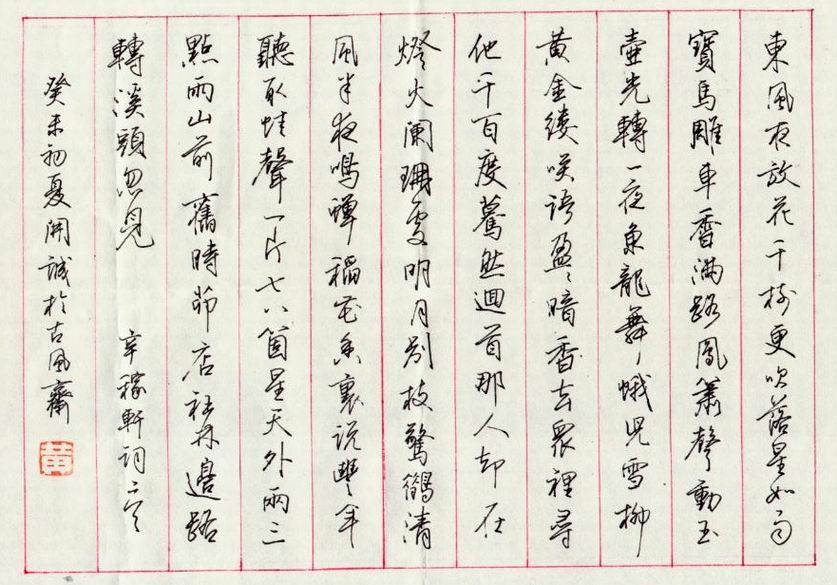 東風夜放花千樹更吹落星如雨
寶馬雕車香滿路鳳簫聲動玉
壺光轉一夜魚龍舞蛾兒雪柳
黃金縷笑語盈盈暗香去衆裡尋
他千百度驀然迴首那人却在
燈火闌珊處明月別枝驚鵲清
風半夜鳴蟬稻花香裏説豐年
聽取蛙聲一片七八箇星天外兩三
點雨山前舊時茆店社林邊路
轉溪頭忽見 辛稼軒詞二首
癸未初夏開誠於古風齋
黃